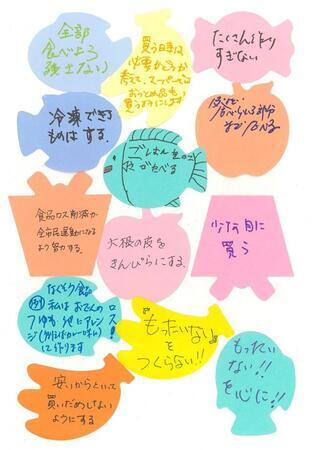 全部
食べよう
残さない
買う時は
必要かどうか
考えて、スーパーでは
おつとめ品も
買うようにします
たくさん作り
すぎない
冷凍できる
ものはする。
皮など
食べられる部分
まで食べる
ごはんを
食べる
食品ロス削減が
全市民運動になる
よう努力する。
大根の皮を
きんぴらにする。
少なめに
買う
なくそう食品
ロス!
例 私はおでんの
つゆを
アレン
ジ
に作ります
"もったいない"
を
つくらない!!
もったい
ない!!
を心に!!
安いからといって
買いだめしない
ようにする